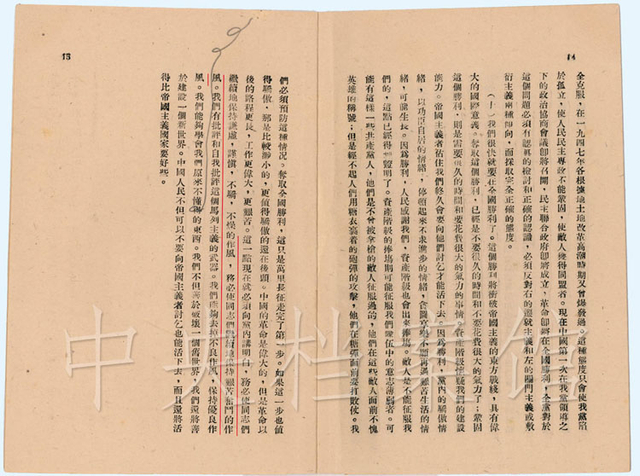 14
全克服，在一九四七年各根據地土地改革高潮時期又曾發發過。這種態度只會使我黨陷
於孤立，使人民民主專政不能鞏固，使敵人獲得同盟者。現在中國第一次在我黨領導之
下的政治協商會議即將召開，民主聯合政府即將成立，革命即將在全國勝利，全黨對於
這個問題必須有認眞的檢討和正確的認識，必須反對右的遷就主義和左的關門主義或敷
衍主義兩種傾向，而採取完全正確的態度。
（十）我們很快就要在全國勝利了。這個勝利將衝破帝國主義的東方戰綫，具有偉
大的國際意義。奪取這個勝利，已經是不要很久的時間和不要花費很大的氣力了；鞏固
這個勝利，則是需要很久的時間和要花費很大的氣力的事情。資產階級懷疑我們的建設
能力。帝國主義者估計我們終久會要向他們討乞才能活下去。因爲勝利，黨內的驕傲情
緒，以功臣自居的情緒，停頓起來不求進步的情緒，貪圖享樂不願再過艱苦生活的情
緒，可能生長。因爲勝利，人民感謝我們，資產階級也會出來捧場。敵人是不能征服我
們的，這點已經得到證明了。資產階級的捧場則可能征服我們隊伍中的意志薄弱者。可
能有這樣一些共產黨人，他們是不曾被拿槍的敵人征服過的，他們在這些敵人面前不愧
英雄的稱號；但是經不起人們用糖衣裹着的炮彈的攻擊，他們在糖彈面前要打敗仗。我
15
們必須預防這種情況。奪取全國勝利，這只是萬里長征走完了第一步。如果這一步也值
得驕傲，那是比較渺小的，更值得驕傲的還在後頭。中國的革命是偉大的，但是革命以
後的路程更長，工作更偉大，更艱苦。這一點現在就必須向黨內講明白，務必使同志們
繼續地保持謙虛，謹慎，不驕，不燥的作風，務必使同志們繼續地保持艱苦奮鬥的作
風。我們有批評和自我批評這個馬列主義的武器。我們能夠去掉不良作風，保持優良作
風。我們能夠學會我們原來不懂得的東西。我們不但善於破壞一個舊世界，我們還將善
於建設一個新世界。中國人民不但可以不要向帝國主義者討乞也能活下去，而且還將活
得比帝國主義國家要好些。